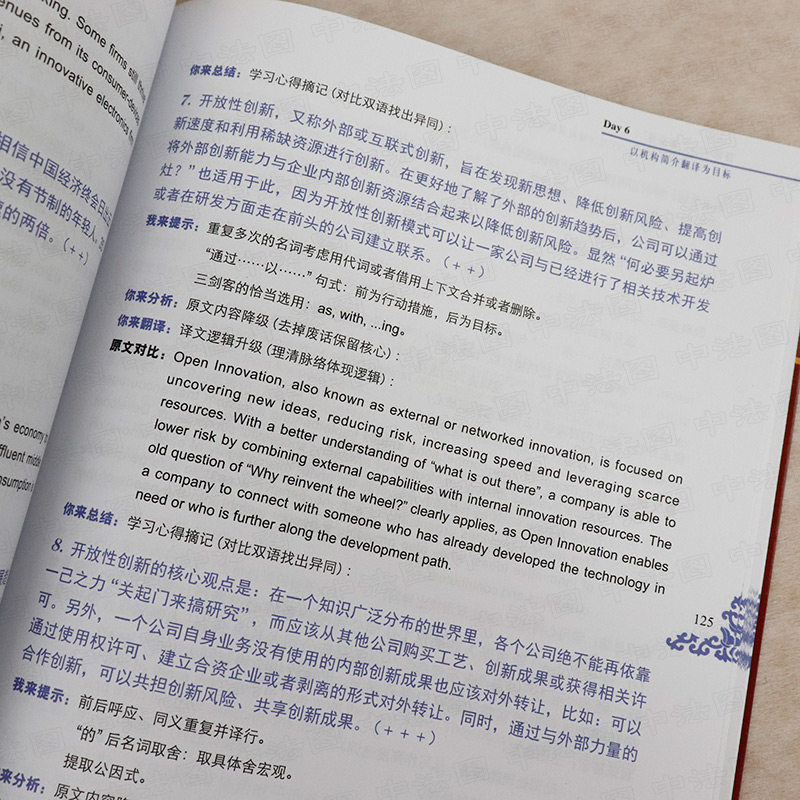 king. Some firms still
enues from its consumer-
i, an innovative electronics
相信中国经济终会
没有节制的年轻人
的两倍。(++)
's economy
ffluent middle
nsumption
Day 6
以机构简介翻译为目标
你来总结：学习心得摘记（对比双语找出异同）：
7. 开放性创新，又称外部或互联式创新，旨在发现新思想、降低创新风险、提高创
新速度和利用稀缺资源进行创新。在更好地了解了外部的创新趋势后，公司可以通过
将外部创新能力与企业内部创新资源结合起来以降低创新风险。显然“何必要另起炉
灶？”也适用于此，因为开放性创新模式可以让一家公司与已经进行了相关技术开发
或者在研发方面走在前头的公司建立联系。(++)
我来提示：重复多次的名词考虑用代词或者借用上下文合并或者删除。
“通过……以……”句式：前为行动措施，后为目标。
三剑客的恰当选用：as, with, ...ing。
你来分析：原文内容降级（去掉废话保留核心）：
你来翻译：译文逻辑升级（理清脉络体现逻辑）：
原文对比：Open Innovation, also known as external or networked innovation, is focused on
uncovering new ideas, reducing risk, increasing speed and leveraging scarce
resources. With a better understanding of “what is out there”, a company is able to
lower risk by combining external capabilities with internal innovation resources. The
old question of “Why reinvent the wheel?” clearly applies, as Open Innovation enables
a company to connect with someone who has already developed the technology in
need or who is further along the development path.
你来总结：学习心得摘记（对比双语找出异同）：
8. 开放性创新的核心观点是：在一个知识广泛分布的世界里，各个公司绝不能再依靠
一己之力“关起门来搞研究”，而应该从其他公司购买工艺、创新成果或获得相关许
可。另外，一个公司自身业务没有使用的内部创新成果也应该对外转让，比如：可以
通过使用权许可、建立合资企业或者剥离的形式对外转让。同时，通过与外部力量的
合作创新，可以共担创新风险、共享创新成果。(+++)
我来提示：前后呼应、同义重复并译行。
“的”后名词取舍：取具体舍宏观。
提取公因式。
你来分析：原文内容
125
中法图